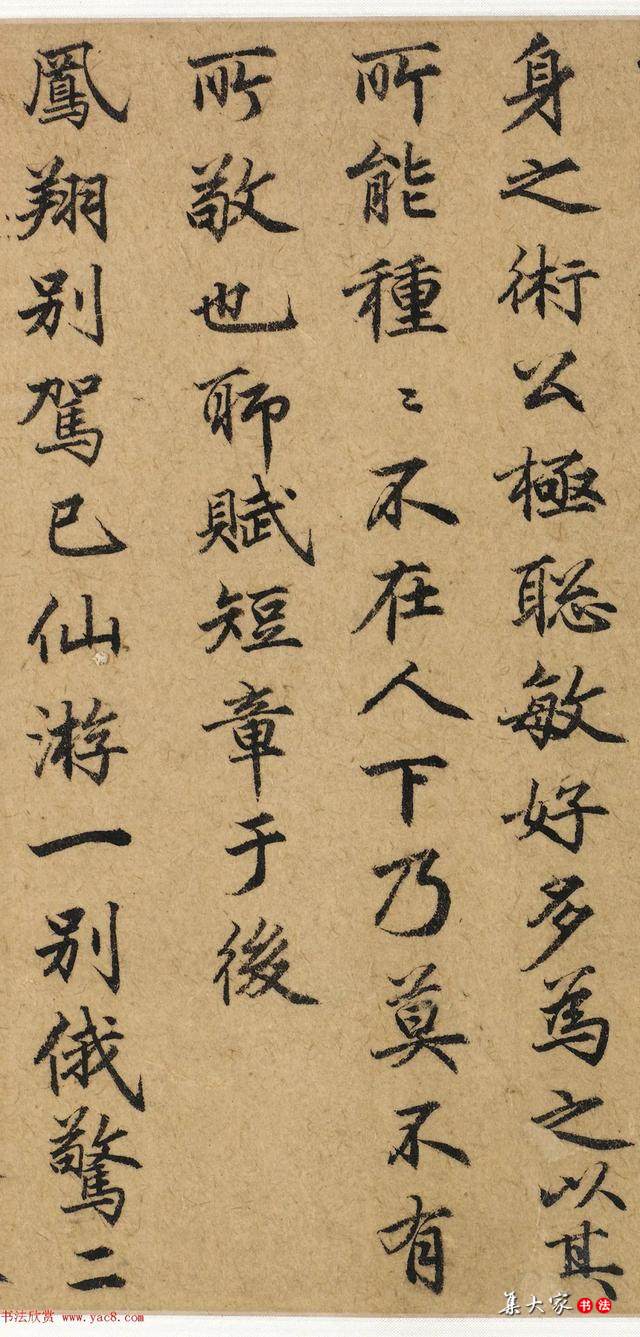 身之術公極聡敏好多為之以其
所能種〻不在人下乃莫不有
所敬也聊賦短章于後
鳳翔别駕已仙游一别俄驚二
集大家书法
书法欣赏 www.yac8.com